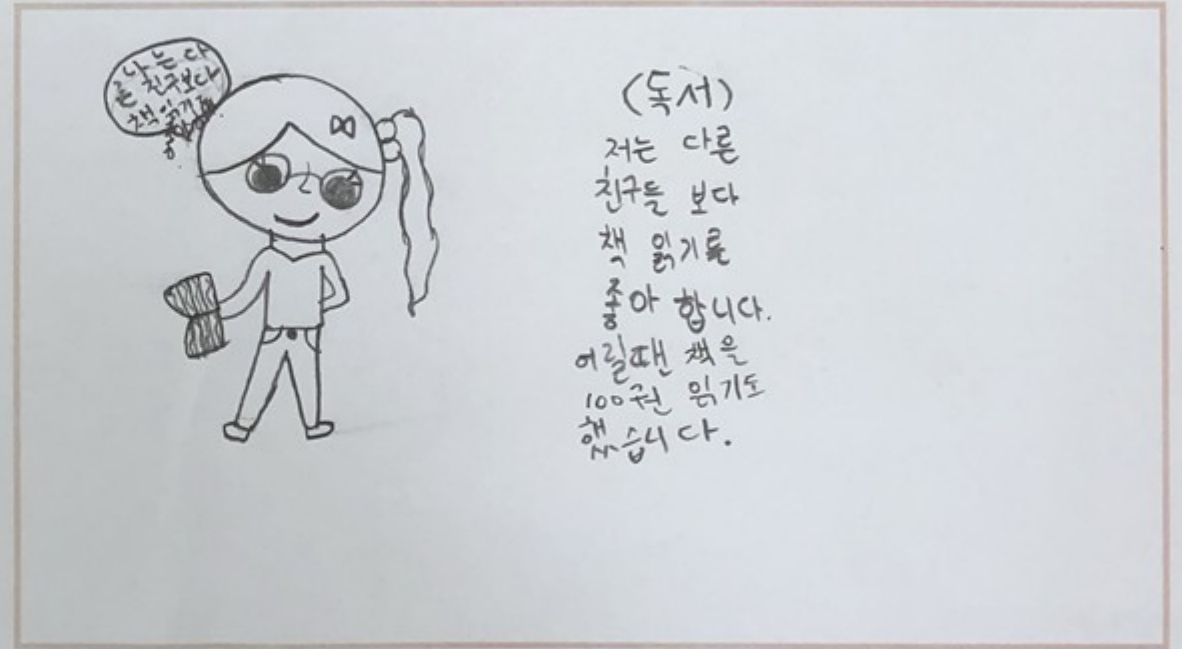 나는 다
른 친구보다
책 읽기를
좋아
(독서)
저는 다른
친구들 보다
책 읽기를
좋아 합니다.
어릴땐 책을
100권 읽기도
했습니다.